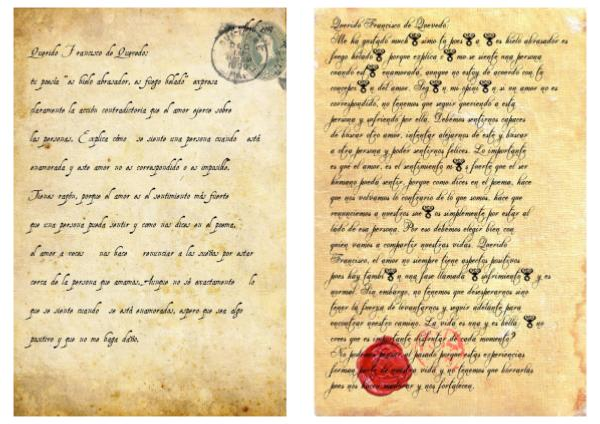 Querido Francisco de Quevedo:
tu poesía "es hielo abrasador, es fuego helado" expresa
claramente la acción contradictoria que el amor ejerce sobre
las personas. Explica cómo se siente una persona cuando está
enamorada y este amor no es correspondido o es imposible.
Tienes razón, porque el amor es el sentimiento más fuerte
que una persona pueda sentir y como nos dices en el poema,
el amor a veces nos hace renunciar a los sueños por estar
cerca de la persona que amamos. Aunque no sé exactamente lo
que se siente cuando se está enamorados, espero que sea algo
positivo y que no me haga daño.
Querido Francisco de Quevedo:
Me ha gustado much❦simo tu poes❦a ❦es hielo abrasador es
fuego helado❦ porque explica c❦mo se siente una persona
cuando est❦ enamorada, aunque no estoy de acuerdo con tu
concepci❦n del amor. Seg❦n mi opini❦n si un amor no es
correspondido, no tenemos que seguir queriendo a esta
persona y sufriendo por ella. Debemos sentirnos capaces
de buscar otro amor, intentar alejarnos de este y buscar
a otra persona y poder sentirnos felices. Lo importante
es que el amor, es el sentimiento m❦s fuerte que el ser
humano pueda sentir, porque como dices en el poema, hace
que nos volvamos lo contrario de lo que somos, hace que
renunciemos a nuestros sue❦os simplemente por estar al
lado de esa persona. Por eso debemos elegir bien con
quien vamos a compartir nuestras vidas. Querido
Francisco, el amor no siempre tiene aspectos positivos
pues hay tambi❦n una fase llamada ❦sufrimiento❦ y es
normal. Sin embargo, no tenemos que desesperarnos sino
tener la fuerza de levantarnos y seguir adelante para
encontrar nuestro camino. La vida es una y es bella. ❦no
crees que es importante disfrutar de cada momento?
No podemos borrar el pasado porque estas experiencias
forman parte de nuestra vida y no tenemos que borrarlas
pues nos hacen madurar y nos fortalecen.